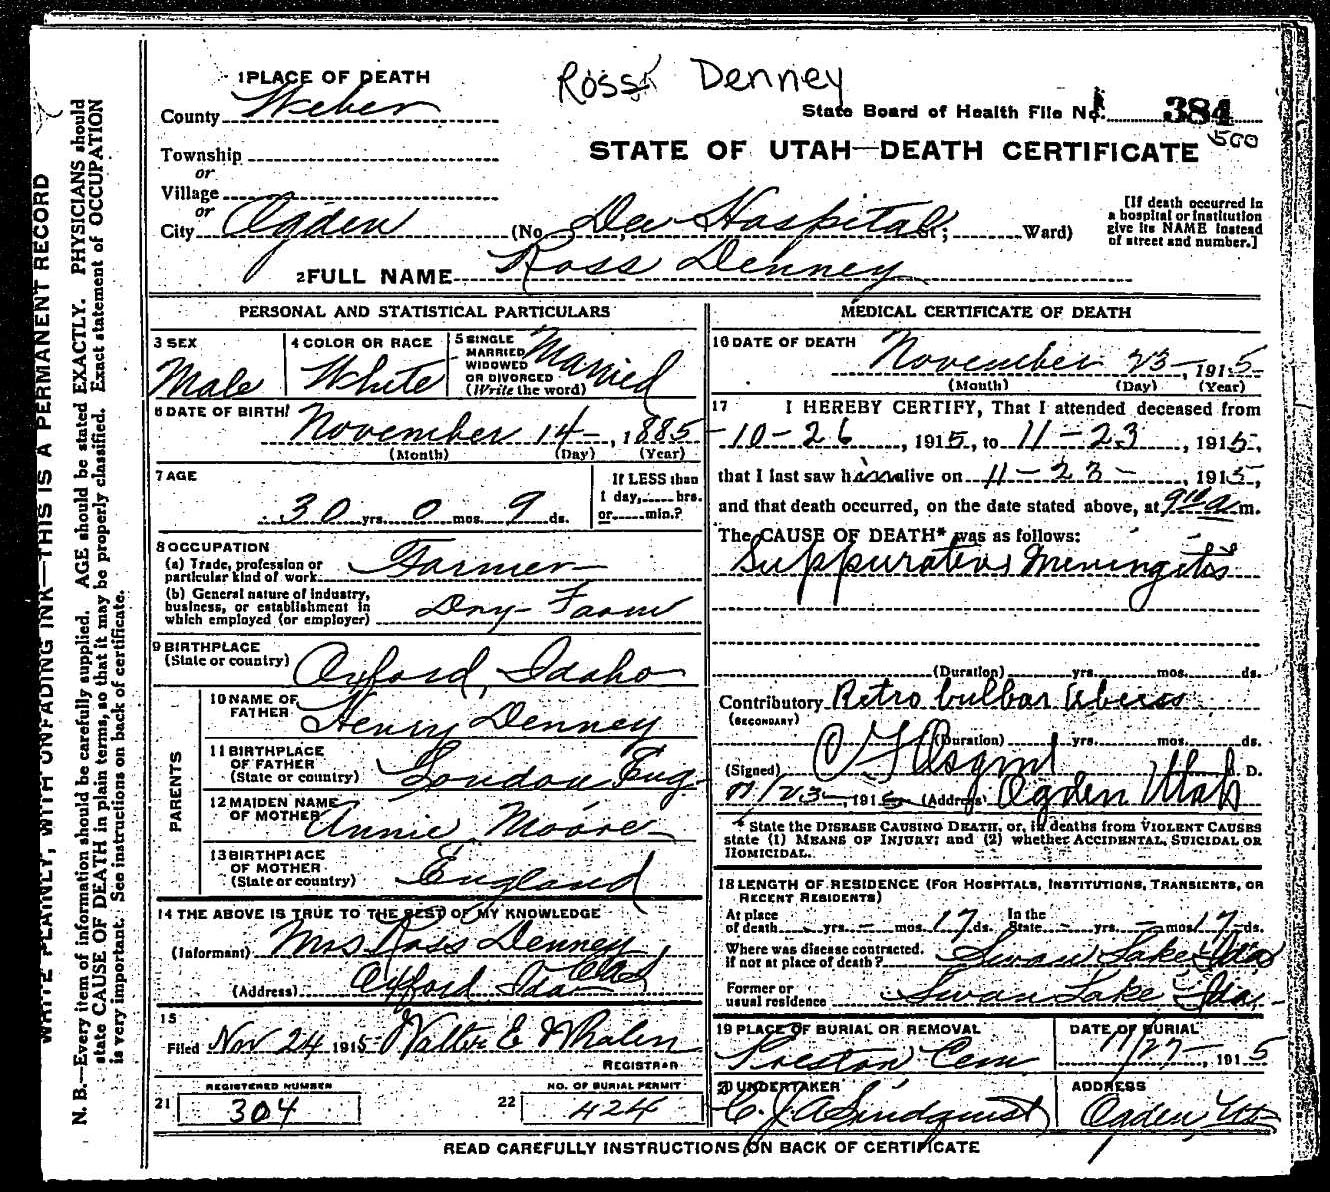 Ross Denney
1 PLACE OF DEATH
County Weber
State Board of Health File No. 384
500
STATE OF UTAH—DEATH CERTIFICATE
Township
or
Village
or
City Ogden (No. Dee Hospital St; Ward)
[If death occurred in
a hospital or institution
give its NAME instead
of street and number.]
2 FULL NAME Ross Denney
PERSONAL AND STATISTICAL PARTICULARS
3 SEX
Male
4 COLOR OR RACE
White
5 SINGLE
MARRIED
WIDOWED
OR DIVORCED
(Write the word)
Married
6 DATE OF BIRTH
November 14 , 1885
(Month) (Day) (Year)
7 AGE
30 yrs. 0 mos. 9 ds.
If LESS than
1 day, hrs.
or min.?
8 OCCUPATION
(a) Trade, profession or
particular kind of work Farmer
(b) General nature of industry,
business, or establishment in
which employed (or employer) Dry-Farm
9 BIRTHPLACE
(State or country) Oxford, Idaho
PARENTS
10 NAME OF
FATHER Henry Denney
11 BIRTHPLACE
OF FATHER
(State or country) London Eng.
12 MAIDEN NAME
OF MOTHER Annie Moore
13 BIRTHPLACE
OF MOTHER
(State or country) England
14 THE ABOVE IS TRUE TO THE BEST OF MY KNOWLEDGE
(Informant) Mrs Ross Denney
(Address) Oxford Ida
15
Filed Nov 24 1915 Walter E Whalen
REGISTRAR
REGISTERED NUMBER
21 304
NO. OF BURIAL PERMIT
22 424
MEDICAL CERTIFICATE OF DEATH
16 DATE OF DEATH
November 23 , 1915
(Month) (Day) (Year)
17 I HEREBY CERTIFY, That I attended deceased from
10-26 , 1915, to 11-23 , 1915,
that I last saw him alive on 11-23- , 1915,
and that death occurred, on the date stated above, at 9 10 a m.
The CAUSE OF DEATH* was as follows:
Suppurative Meningitis
(Duration) yrs. mos. ds.
Contributory Retro bulbar Abscess
(SECONDARY)
(Duration) yrs. mos. ds.
(Signed) M. D.
11/23 , 1915 (Address) Ogden Utah
* State the DISEASE CAUSING DEATH, or, in deaths from VIOLENT CAUSES
state (1) MEANS OF INJURY; and (2) whether ACCIDENTAL, SUICIDAL OR
HOMICIDAL.
18 LENGTH OF RESIDENCE (FOR HOSPITALS, INSTITUTIONS, TRANSIENTS, OR
RECENT RESIDENTS)
At place
of death - yrs. - mos. 17 ds. In the
State - yrs. - mos. 17 ds.
Where was disease contracted,
if not at place of death? Swan Lake Ida
Former or
usual residence Swan Lake Ida.
19 PLACE OF BURIAL OR REMOVAL
Preston Cem
DATE OF BURIAL
11/27 , 1915
20 UNDERTAKER
C. J. A Lindquist
ADDRESS
Ogden, Ut
READ CAREFULLY INSTRUCTIONS ON BACK OF CERTIFICATE
WRITE PLAINLY, WITH UNFADING INK—THIS IS A PERMANENT RECORD
N. B.—Every item of information should be carefully supplied. AGE should be stated EXACTLY. PHYSICIANS should
state CAUSE OF DEATH in plain terms, so that it may be properly classified. Exact statement of OCCUPATION
is very important. See instructions on back of certificate.